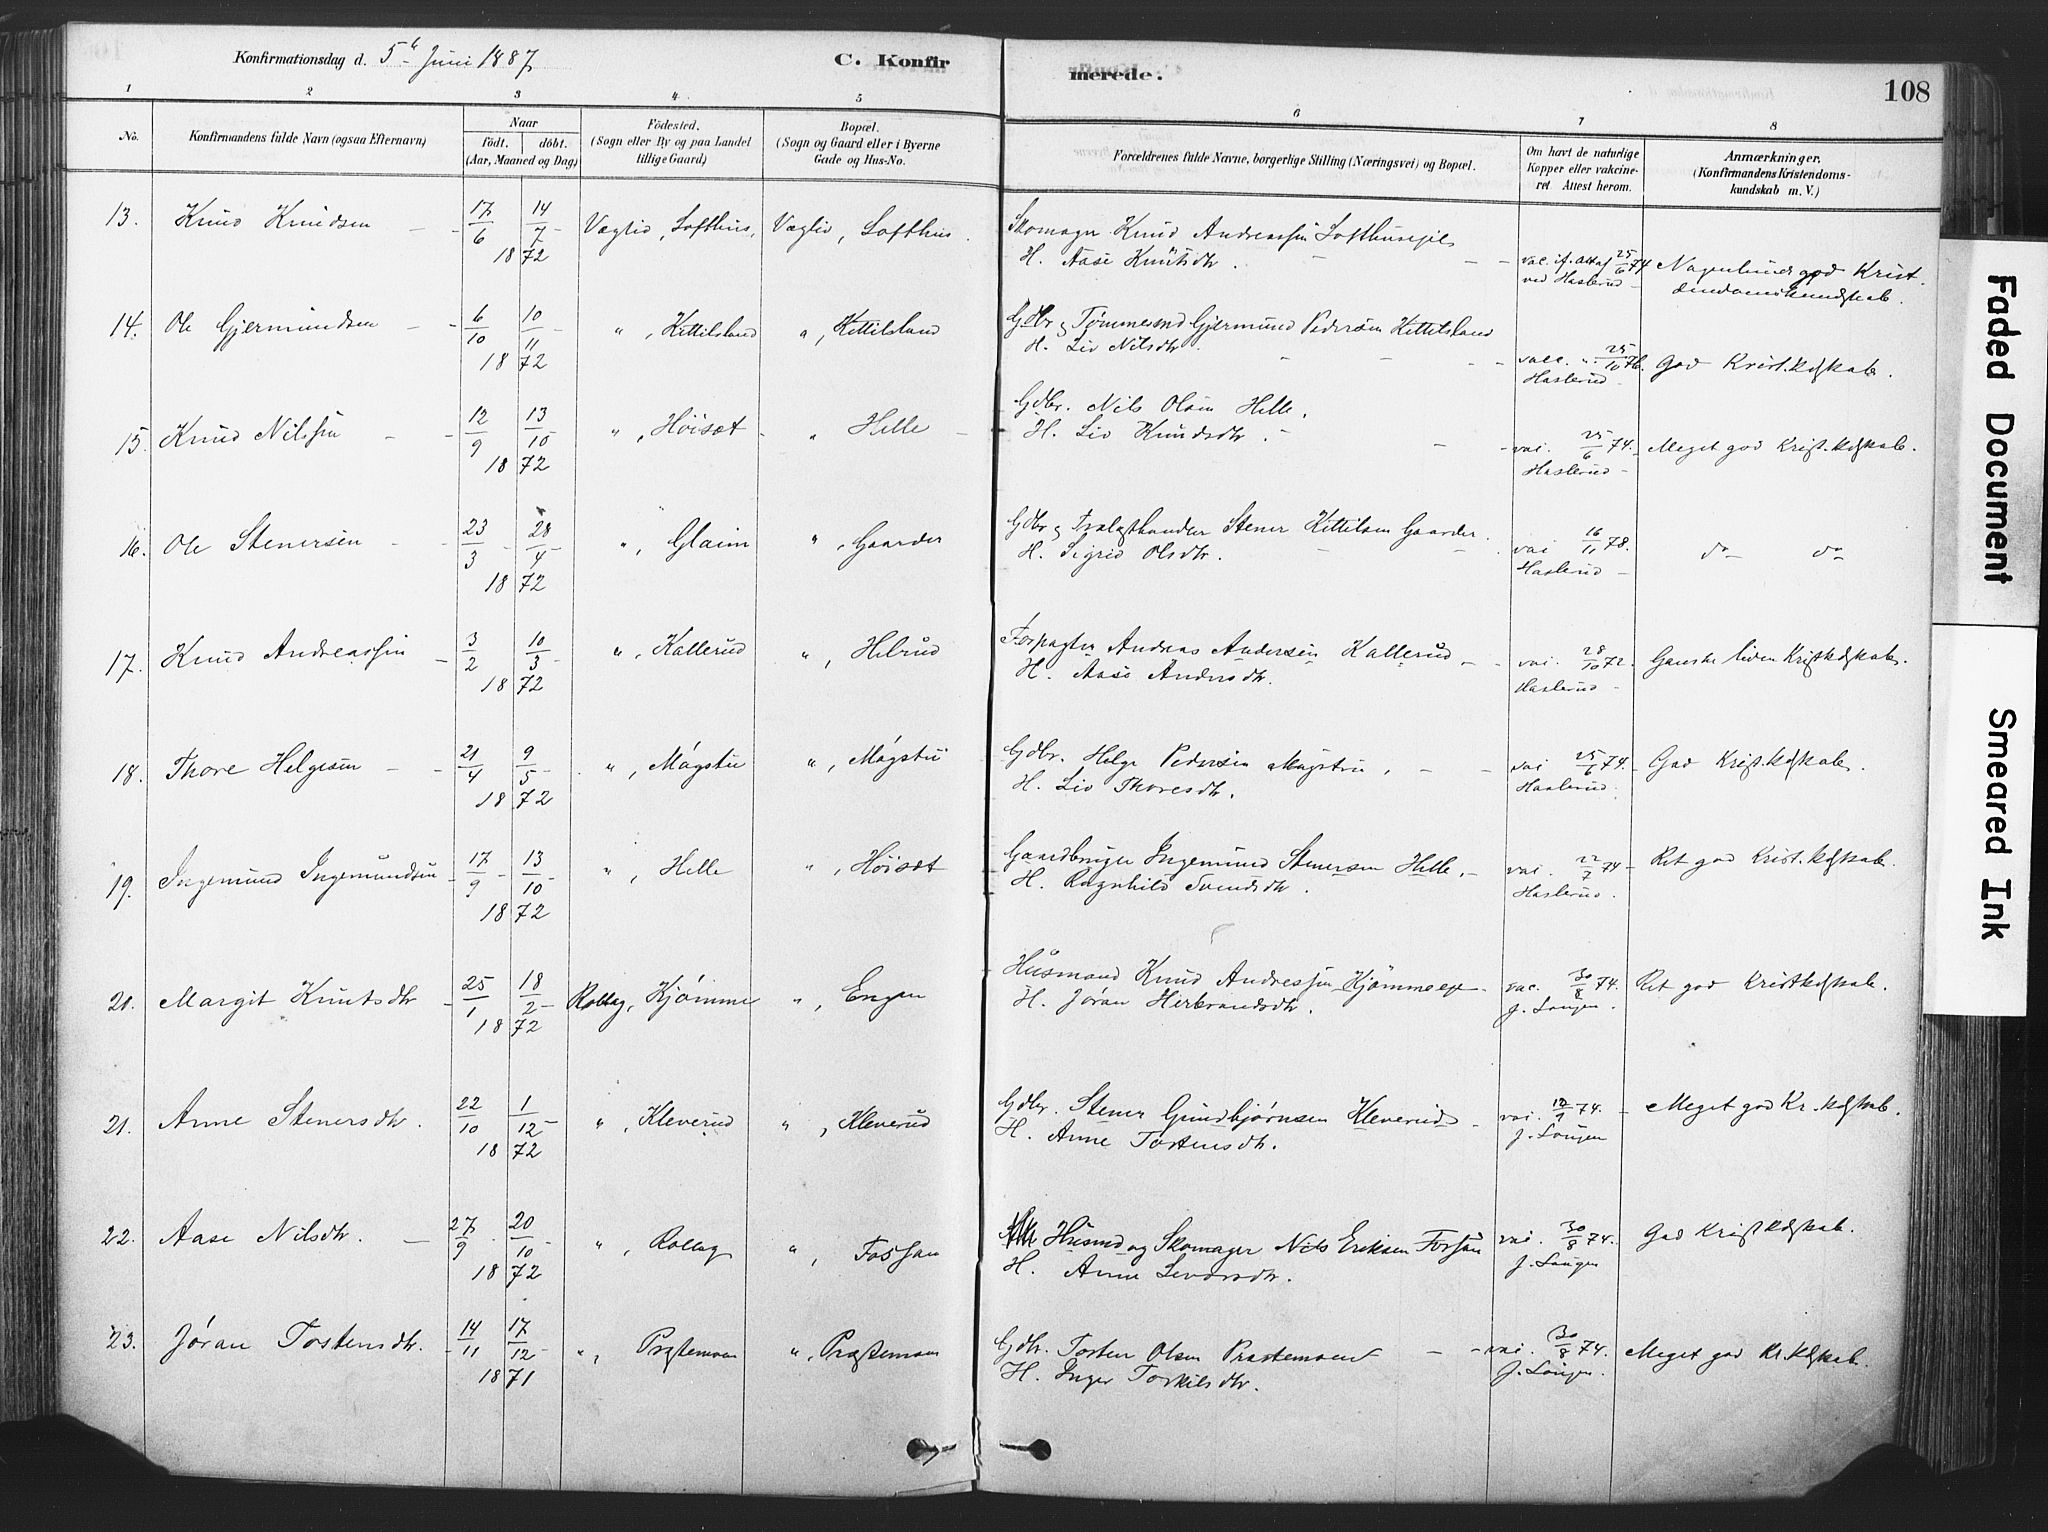 Konfirmationsdag d. 5te Juni 1887
C. Konfirmerede.
108
1 2 3 4 5 6 7 8
No.
Konfirmandens fulde Navn (ogsaa Efternavn)
Naar
födt. döbt.
(Aar, Maaned og Dag)
Födested.
(Sogn eller By og paa Landet
tillige Gaard)
Bopæl.
(Sogn og Gaard eller i Byerne
Gade og Hus-No.
Forældrenes fulde Navne, borgerlige Stilling (Næringsvei) og Bopæl.
Om havt de naturlige
Kopper eller vakcine-
ret. Attest herom.
Anmærkninger.
(Konfirmandens Kristendoms-
kundskab m. V.)
13. Knud Knudsen 17/6 14/7 1872 Væglid, Lofthus, Væglid, Lofthus. Skomager Knud Andreassen Lofthuseje
H. Aase Knutsdtr. vac. if. att af 25/6 74 ved Haslerud Nogenlunde god Kristendomskundskab.
14. Ole Gjermundsen 6/10 10/11 1872 " , Kittilsland " , Kittilsland Gdbr. og Tømmesmd Gjermund Pedersen Kittilsland
H. Liv Nilsdtr. vacc. " 25/10 76. Haslerud God Krist.kdskab.
15. Knud Nilssen 12/9 13/10 1872 " , Höisæt " Helle Gdbr. Nils Olsen Helle.
H. Liv Knudsdtr. vac. 25/6 74. Haslerud Meget god Krist.kdskab.
16. Ole Stenersen 23/3 28/4 1872 " , Glaim " , Gaarder Gdbr. og Stener Kittilsen Gaarder.
H. Sigrid Olsdtr. vac. 16/11 78. Haslerud do do
17. Knud Andreassen 3/2 10/3 1872 " , Kallerud " , Helrud Forpagter Andreas Andersen Kallerud
H. Aase Andersdtr. vac. 28/10 72. Haslerud Ganske liden Kristkdskab.
18. Thore Helgesen 21/4 9/5 1872 " , Mógstu " , Mógstu Gdbr. Helge Pedersen Mogstu,
H. Liv Thoresdtr. vac. 25/6 74. Haslerud God Krist.kdskab.
19. Ingemund Ingemundsen 17/9 13/10 1872 " , Helle " , Höisæt Gaardbruger Ingemund Stenersen Helle,
H. Ragnhild Svendsdtr. vac. 22/7 74 Haslerud. Ret god Krist.kdskab.
20. Margit Knutsdtr 25/1 18/2 1872 Rollag, Kjømme " , Engen Husmand Knud Andressen Kjømmeeje
H. Jøran Herbrandsdtr. vac. 30/8 74. J. Lougen. Ret god Kristkdskab.
21. Anne Stenersdtr. 22/10 1/12 1872 " , Kleverud " , Kleverud Gdbr. Stener Gundbjørnsen Kleverud
H. Anne Tostensdtr. vac. 74. J. Lougen Meget god Kr.kdskab.
22. Aase Nilsdtr. 27/9 20/10 1872 " , Rollag " , Fossan Husmd og Skomager Nils Eriksen Forsan
H. Anne vac. 30/8 74. J. Lougen God Kristkdskab.
23. Jøran Tostensdtr. 14/11 17/12 1871 " , Præstemoen " , Præstemoen Gdbr. Tosten Olsen Præstemoen
H. Inger Torkilsdtr. vac. 30/8 74. J. Lougen. Meget god Kr.kdskab.
Faded Document
Smeared Ink